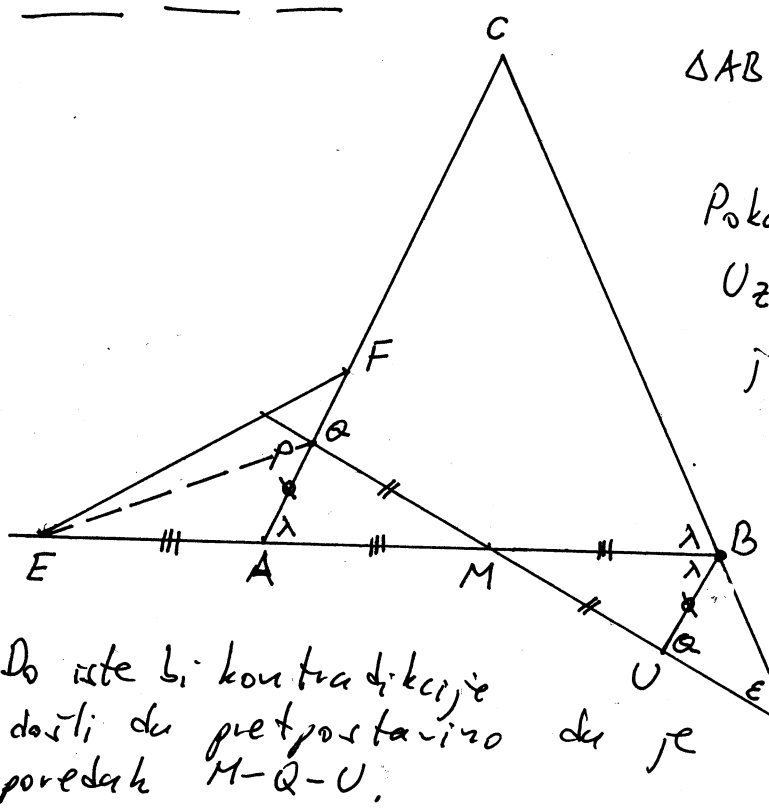 C
ΔAB
Poka
Uz
j
F
Q
P
λ
λ
B
λ
E
A
M
Q
U
ε
Do iste bi kontradikcije
došli da pretpostavimo da je
poredak M-Q-U.